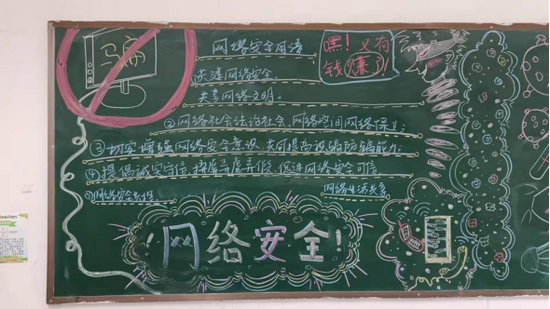 网络安全网语
嘿!又有
钱赚了!
关注网络安全
共享网络文明。
②网络社会法治社会、网络空间网络保
③切实增强网络安全意识 共同提高识骗防骗能力
④提倡诚实守信 摒弃弄虚弄假,促进网络安全可信
网络安全
网络
!网络安全!